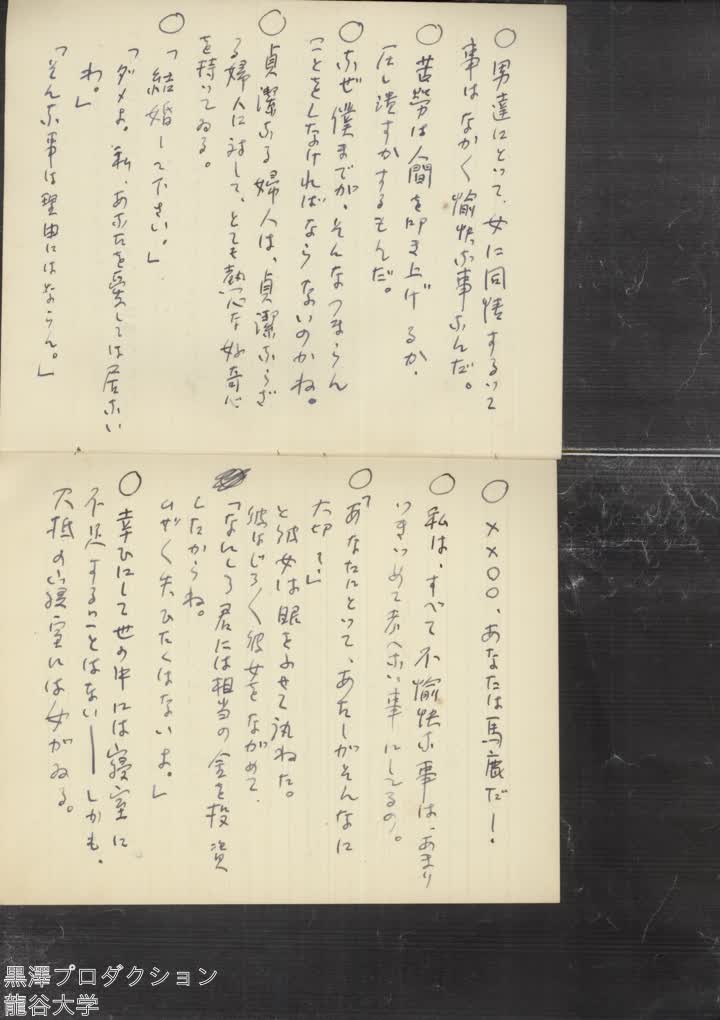 ○男達にとって、女に同情するって
事はなかく愉快な事なんだ。
○苦勞は人間を叩き上げるか、
圧し潰すかするもんだ。
○なぜ僕までが、そんなつまらん
ことをしなければならないのかね。
○貞潔なる婦人は、貞潔ならざ
る婦人に対して、とても熱心な好奇心
を持ってゐる。
○「結婚して下さい。」
「ダメよ。私、あなたを愛しては居ない
わ。」
「そんな事は理由にはならん。」
○××○○、あなたは馬鹿だ!
○私は、すべて不愉快な事は、あまり
つきつめて考へない事にしてるの。
○「あなたにとって、あたしがそんなに
大切?」
と彼女は眼をふせて訊ねた。
彼はじろ〱彼女をながめて、
「なにしろ君には相当の金を投資
したからね。
ムザ〱失ひたくはないよ。」
○幸ひにして世の中には寝室に
不足することはない――しかも、
大抵の寝室には女がゐる。
黒澤プロダクション
龍谷大学